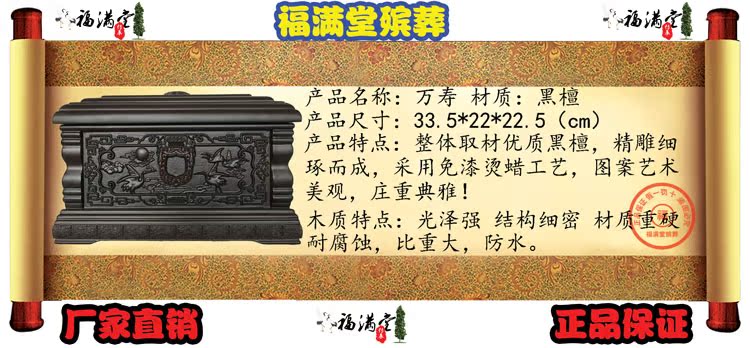 福满堂
福满堂殡葬
福满堂
产品名称：万寿 材质：黑檀
产品尺寸：33.5*22*22.5（cm）
产品特点：整体取材优质黑檀，精雕细
琢而成，采用免漆烫蜡工艺，图案艺术
美观，庄重典雅！
木质特点：光泽强 结构细密 材质重硬
耐腐蚀，比重大，防水。
福满堂殡葬
厂家直销
福满堂
正品保证